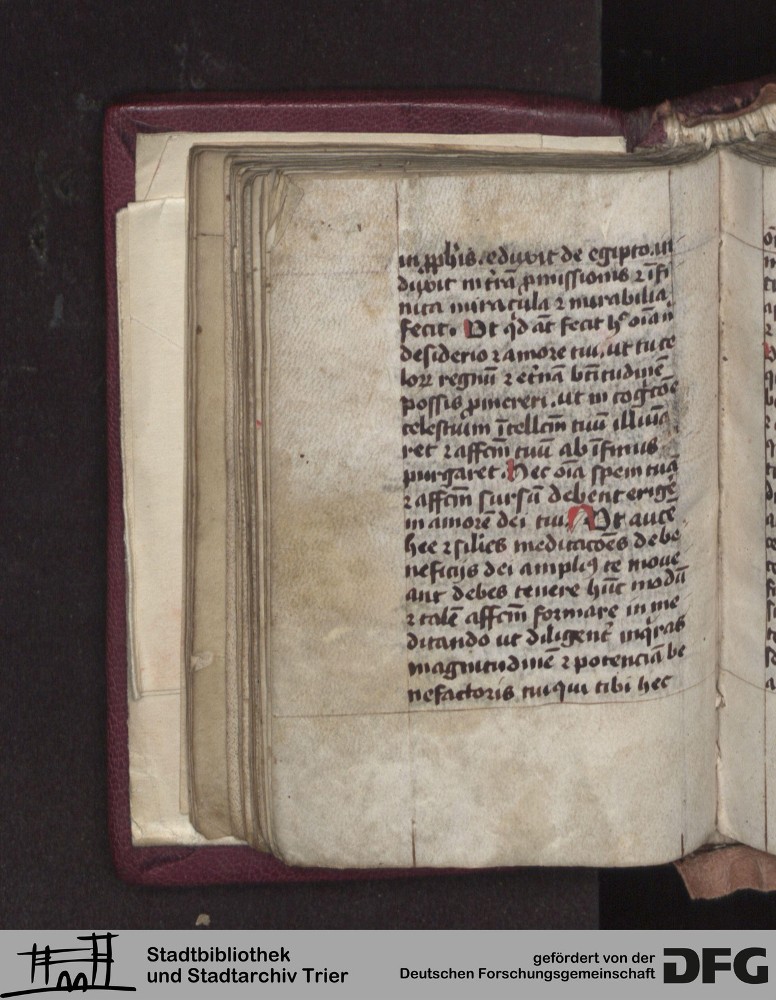 in ꝓphis. eduxit de egipto. in
duxit in trā ꝓmissionis ⁊ īfi
nita miracula ⁊ mirabilia
fecit. Et qd at fecit h oīa n
desiderio ⁊ amore tui. ut tu ce
lorꝝ regnū ⁊ etnā btitudinē
possis ꝓmereri. ut in cogtcōe
celestium ītellcm tuū illuīa
ret ⁊ affcm tuū ab īfimis
purgaret. Hec oīa spem tuā
⁊ affcm sursū debent erigē
in amorē dei tui Ut autē
hee ⁊ silies meditacōes de be
neficijs dei ampliꝰ te moue
ant debes tenere hūc modū
⁊ talē affcm formare in me
ditando ut diligent inqras
magnitudinē ⁊ potenciā be
nefactoris tui qui tibi hec
Stadtbibliothek
und Stadtarchiv Trier
gefördert von der
Deutschen Forschungsgemeinschaft
DFG